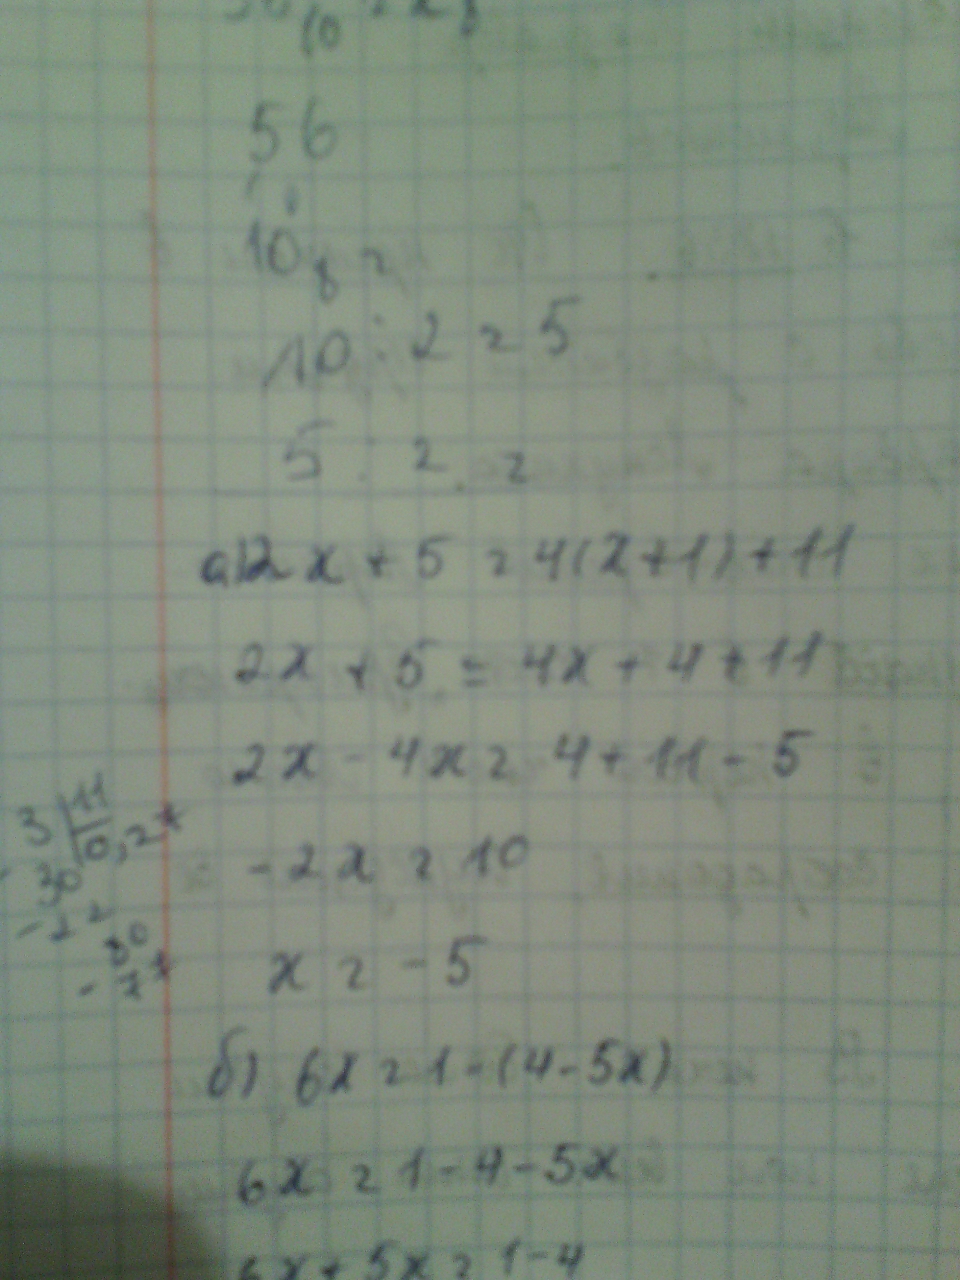 56
10 8 =
10 : 2 = 5
5 : 2 =
а) 2x + 5 = 4(x+1)+11
2x + 5 = 4x + 4 + 11
2x - 4x = 4 + 11 - 5
3 | 11
0,27
30
-2x = 10
-22
80
-77
x = -5
б) 6x = 1 - (4 - 5x)
6x = 1 - 4 - 5x
6x + 5x = 1 - 4